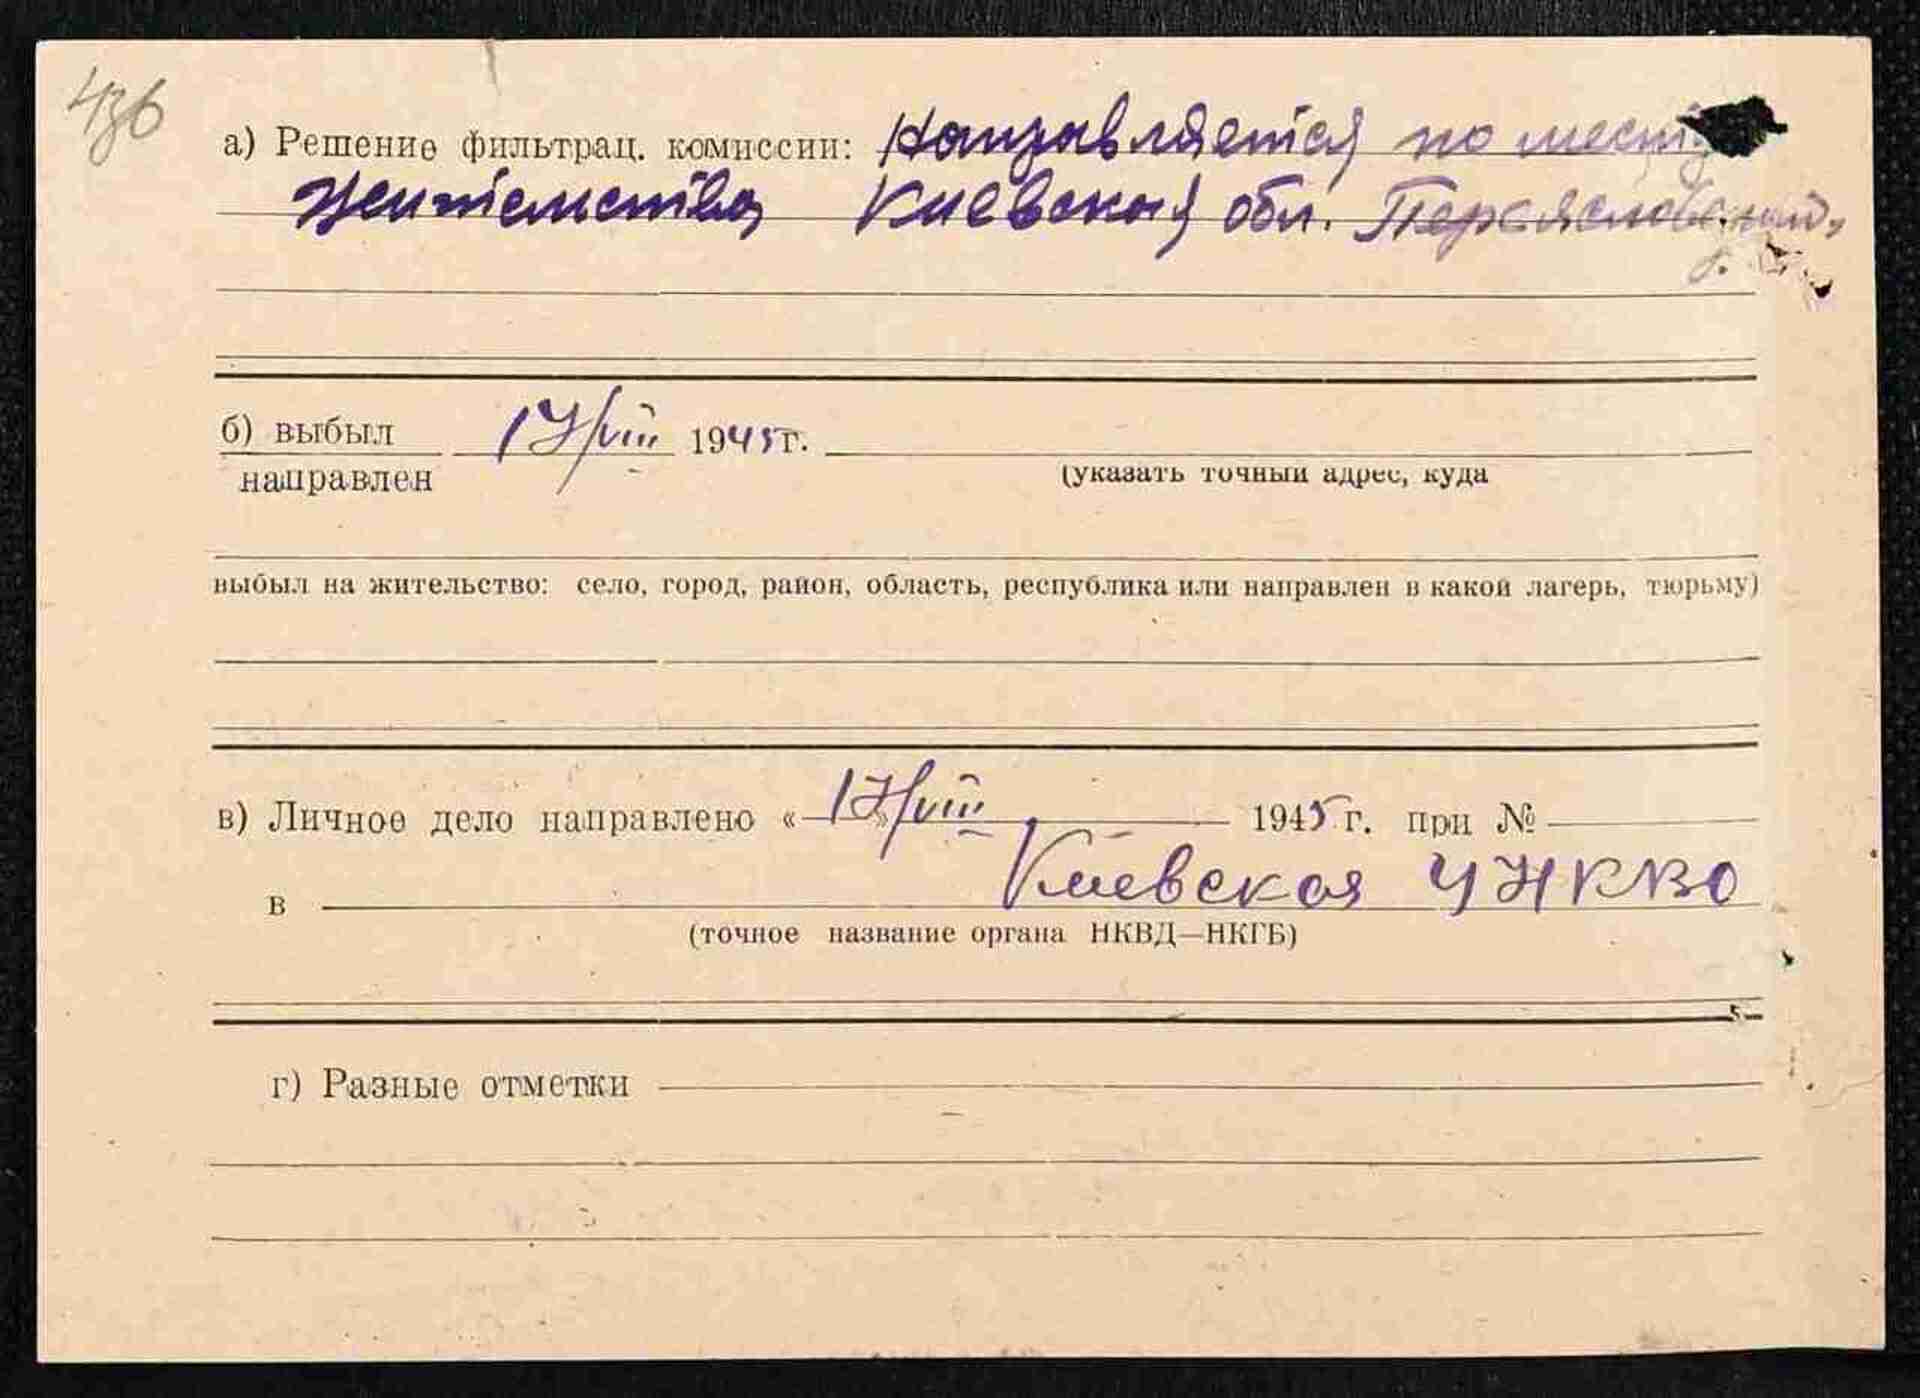 436
а) Решение фильтрац. комиссии: Направляется по месту
Жительства Киевская обл. Переяславский
б) выбыл 17/VIII 1945 г.
направлен (указать точный адрес, куда
выбыл на жительство: село, город, район, область, республика или направлен в какой лагерь, тюрьму)
в) Личное дело направлено « 17/VIII » 1945 г. при №
в Киевская УНКВО
(точное название органа НКВД—НКГБ)
г) Разные отметки